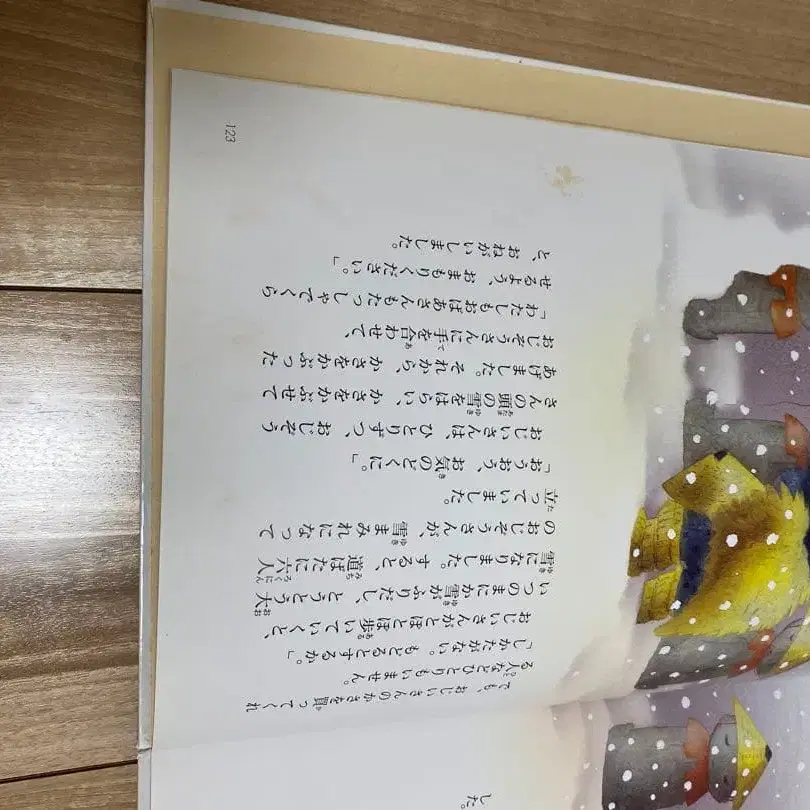 した。
でも、おじいさんのかさを買ってくれ
る人などひとりもいません。
「しかたがない。もどるとするか。」
おじいさんがとぼとぼ歩いていくと、
いつのまにか雪がふりだし、とうとう大
雪になりました。すると、道ばたに六人
のおじぞうさんが、雪まみれになって
立っていました。
「おうおう、お気のどくに。」
おじいさんは、ひとりずつ、おじぞう
さんの頭の雪をはらい、かさをかぶせて
あげました。それから、かさをかぶった
おじぞうさんに手を合わせて、
「わたしもおばあさんもたっしゃでくら
せるよう、おまもりください。」
と、おねがいしました。
123